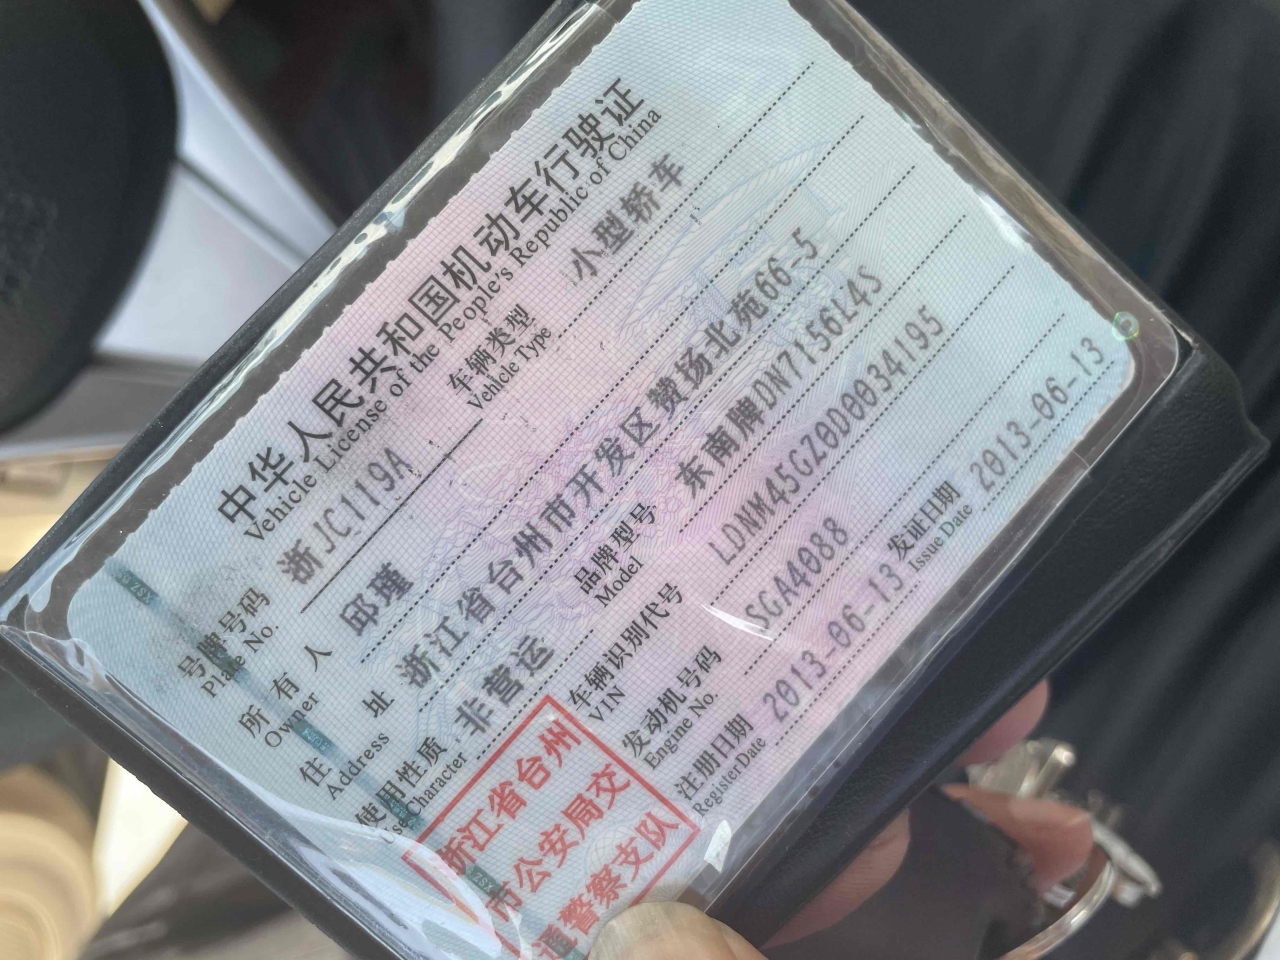 中华人民共和国机动车行驶证
Vehicle License of the People's Republic of China
号牌号码 浙JC1119A 车辆类型 小型轿车
Plate No. Vehicle Type
所有人 邱瑾
Owner
住址 浙江省台州市开发区赞扬北苑66-5
Address
使用性质 非营运 品牌型号 东南牌DN7156L4S
Use Character Model
车辆识别代号 LDNM45GZ0D0034195
VIN
发动机号码 SGA4088
Engine No.
注册日期 2013-06-13 发证日期 2013-06-13
Register Date Issue Date
浙江省台州
市公安局交
通警察支队